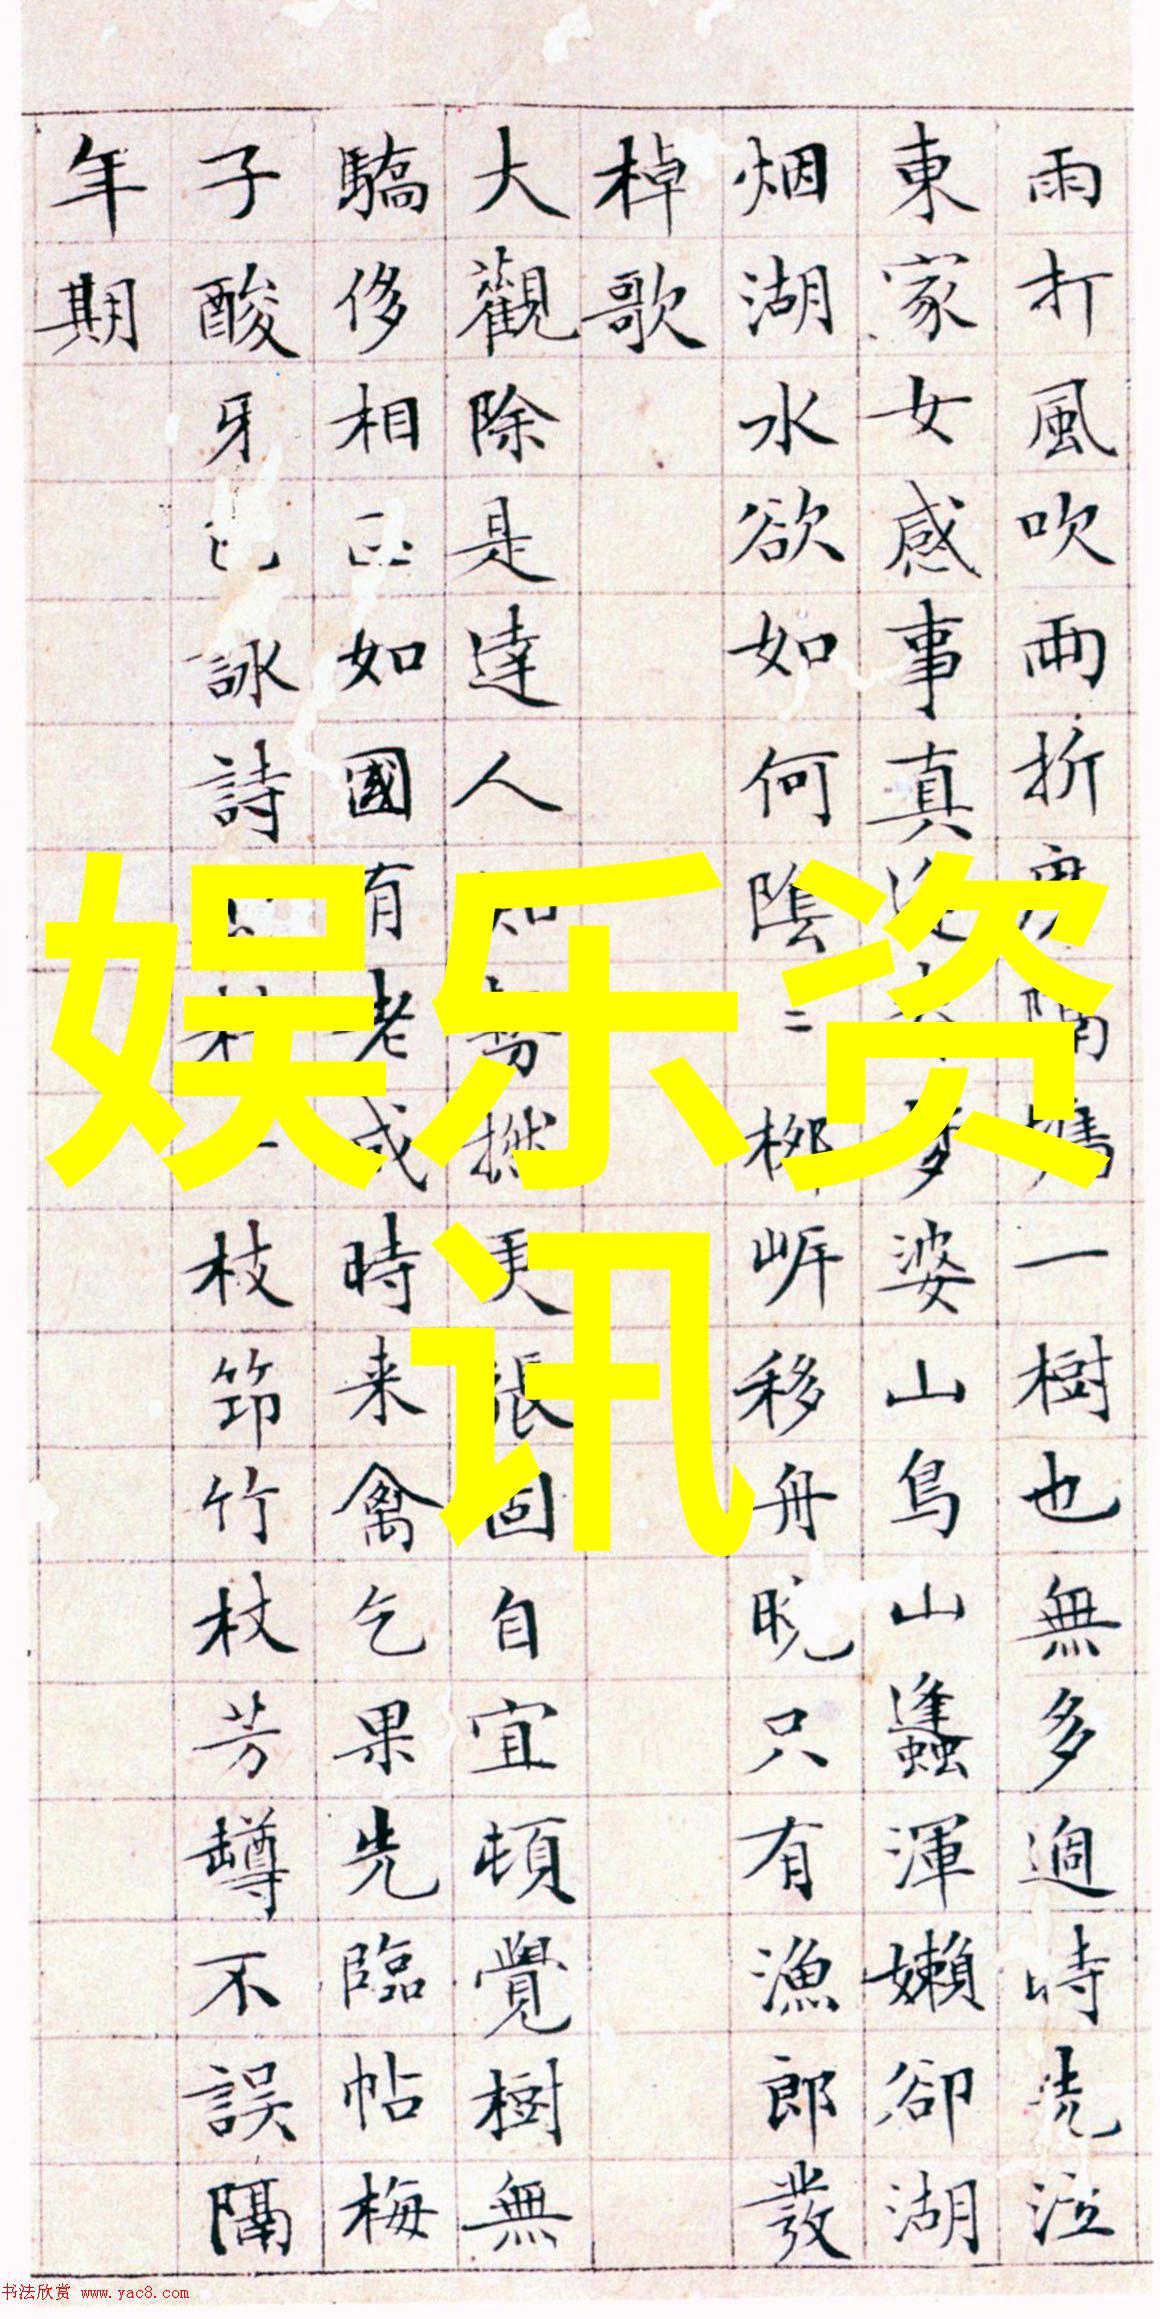 雨打風吹兩折隔一樹也無多過時泣
東家女感事真夢婆山鳥山蠭渾嬾卻湖
烟湖水欲如何陰二柳岍移舟晚只有漁郎發
棹歌
大觀除是達人更張固自宜頓覺樹無
驕侈相如國有老成時来禽乞果先臨帖梅
子酸牙詠詩枝笻竹杖芳罇不誤隔
年期
娱乐资
讯
书法欣赏 www.yac8.com